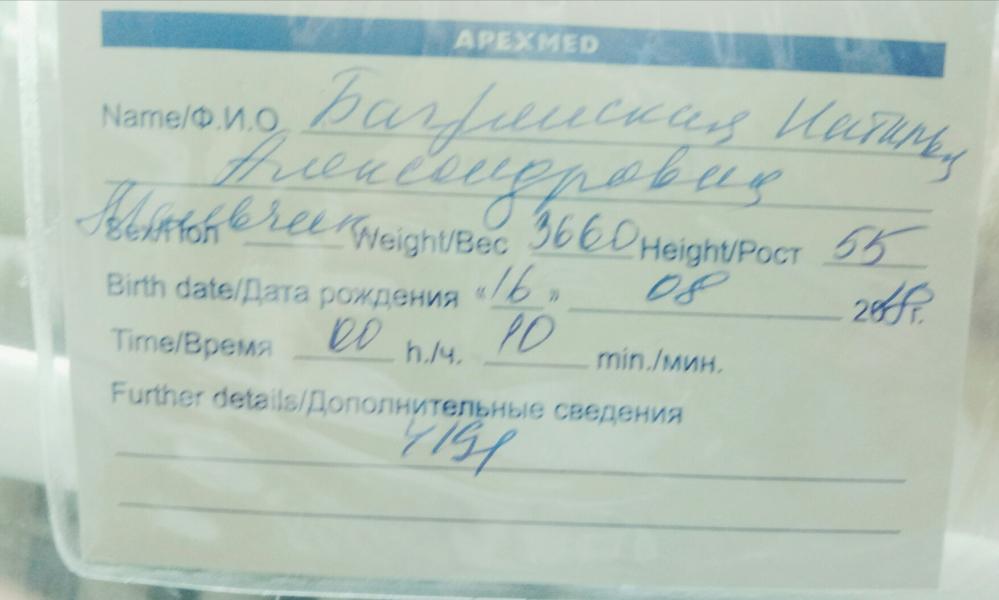 APEXMED
Name/Ф.И.О Багрянская Наталья
Александровна
Sex/Пол Мальчик Weight/Вес 3660 Height/Рост 55
Birth date/Дата рождения «16» 08 2018г.
Time/Время 00 h./ч. 10 min./мин.
Further details/Дополнительные сведения